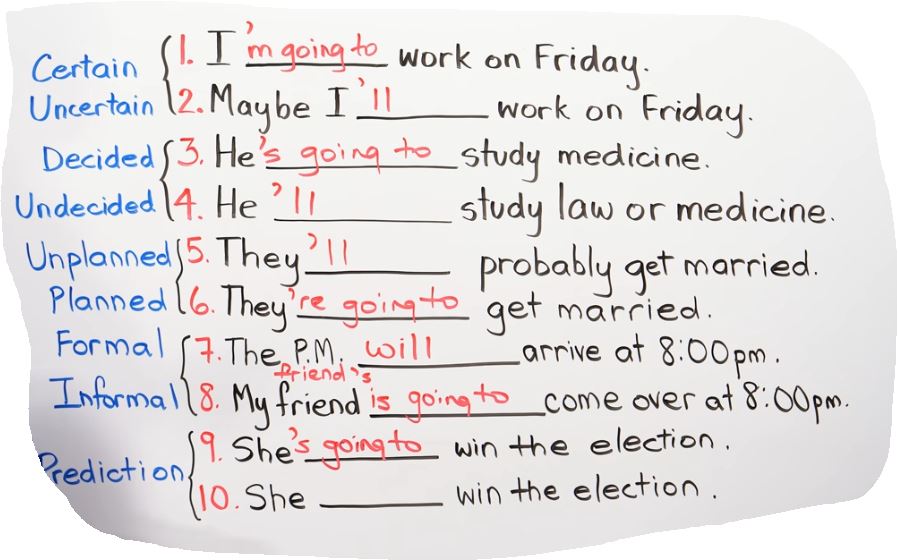 Certain 1. I'm going to work on Friday.
Uncertain 2. Maybe I'll work on Friday.
Decided 3. He's going to study medicine.
Undecided 4. He'll study law or medicine.
Unplanned 5. They'll probably get married.
Planned 6. They're going to get married.
Formal 7. The P.M. will arrive at 8:00pm.
friend's
Informal 8. My friend is going to come over at 8:00pm.
9. She's going to win the election.
Prediction
10. She ______ win the election.